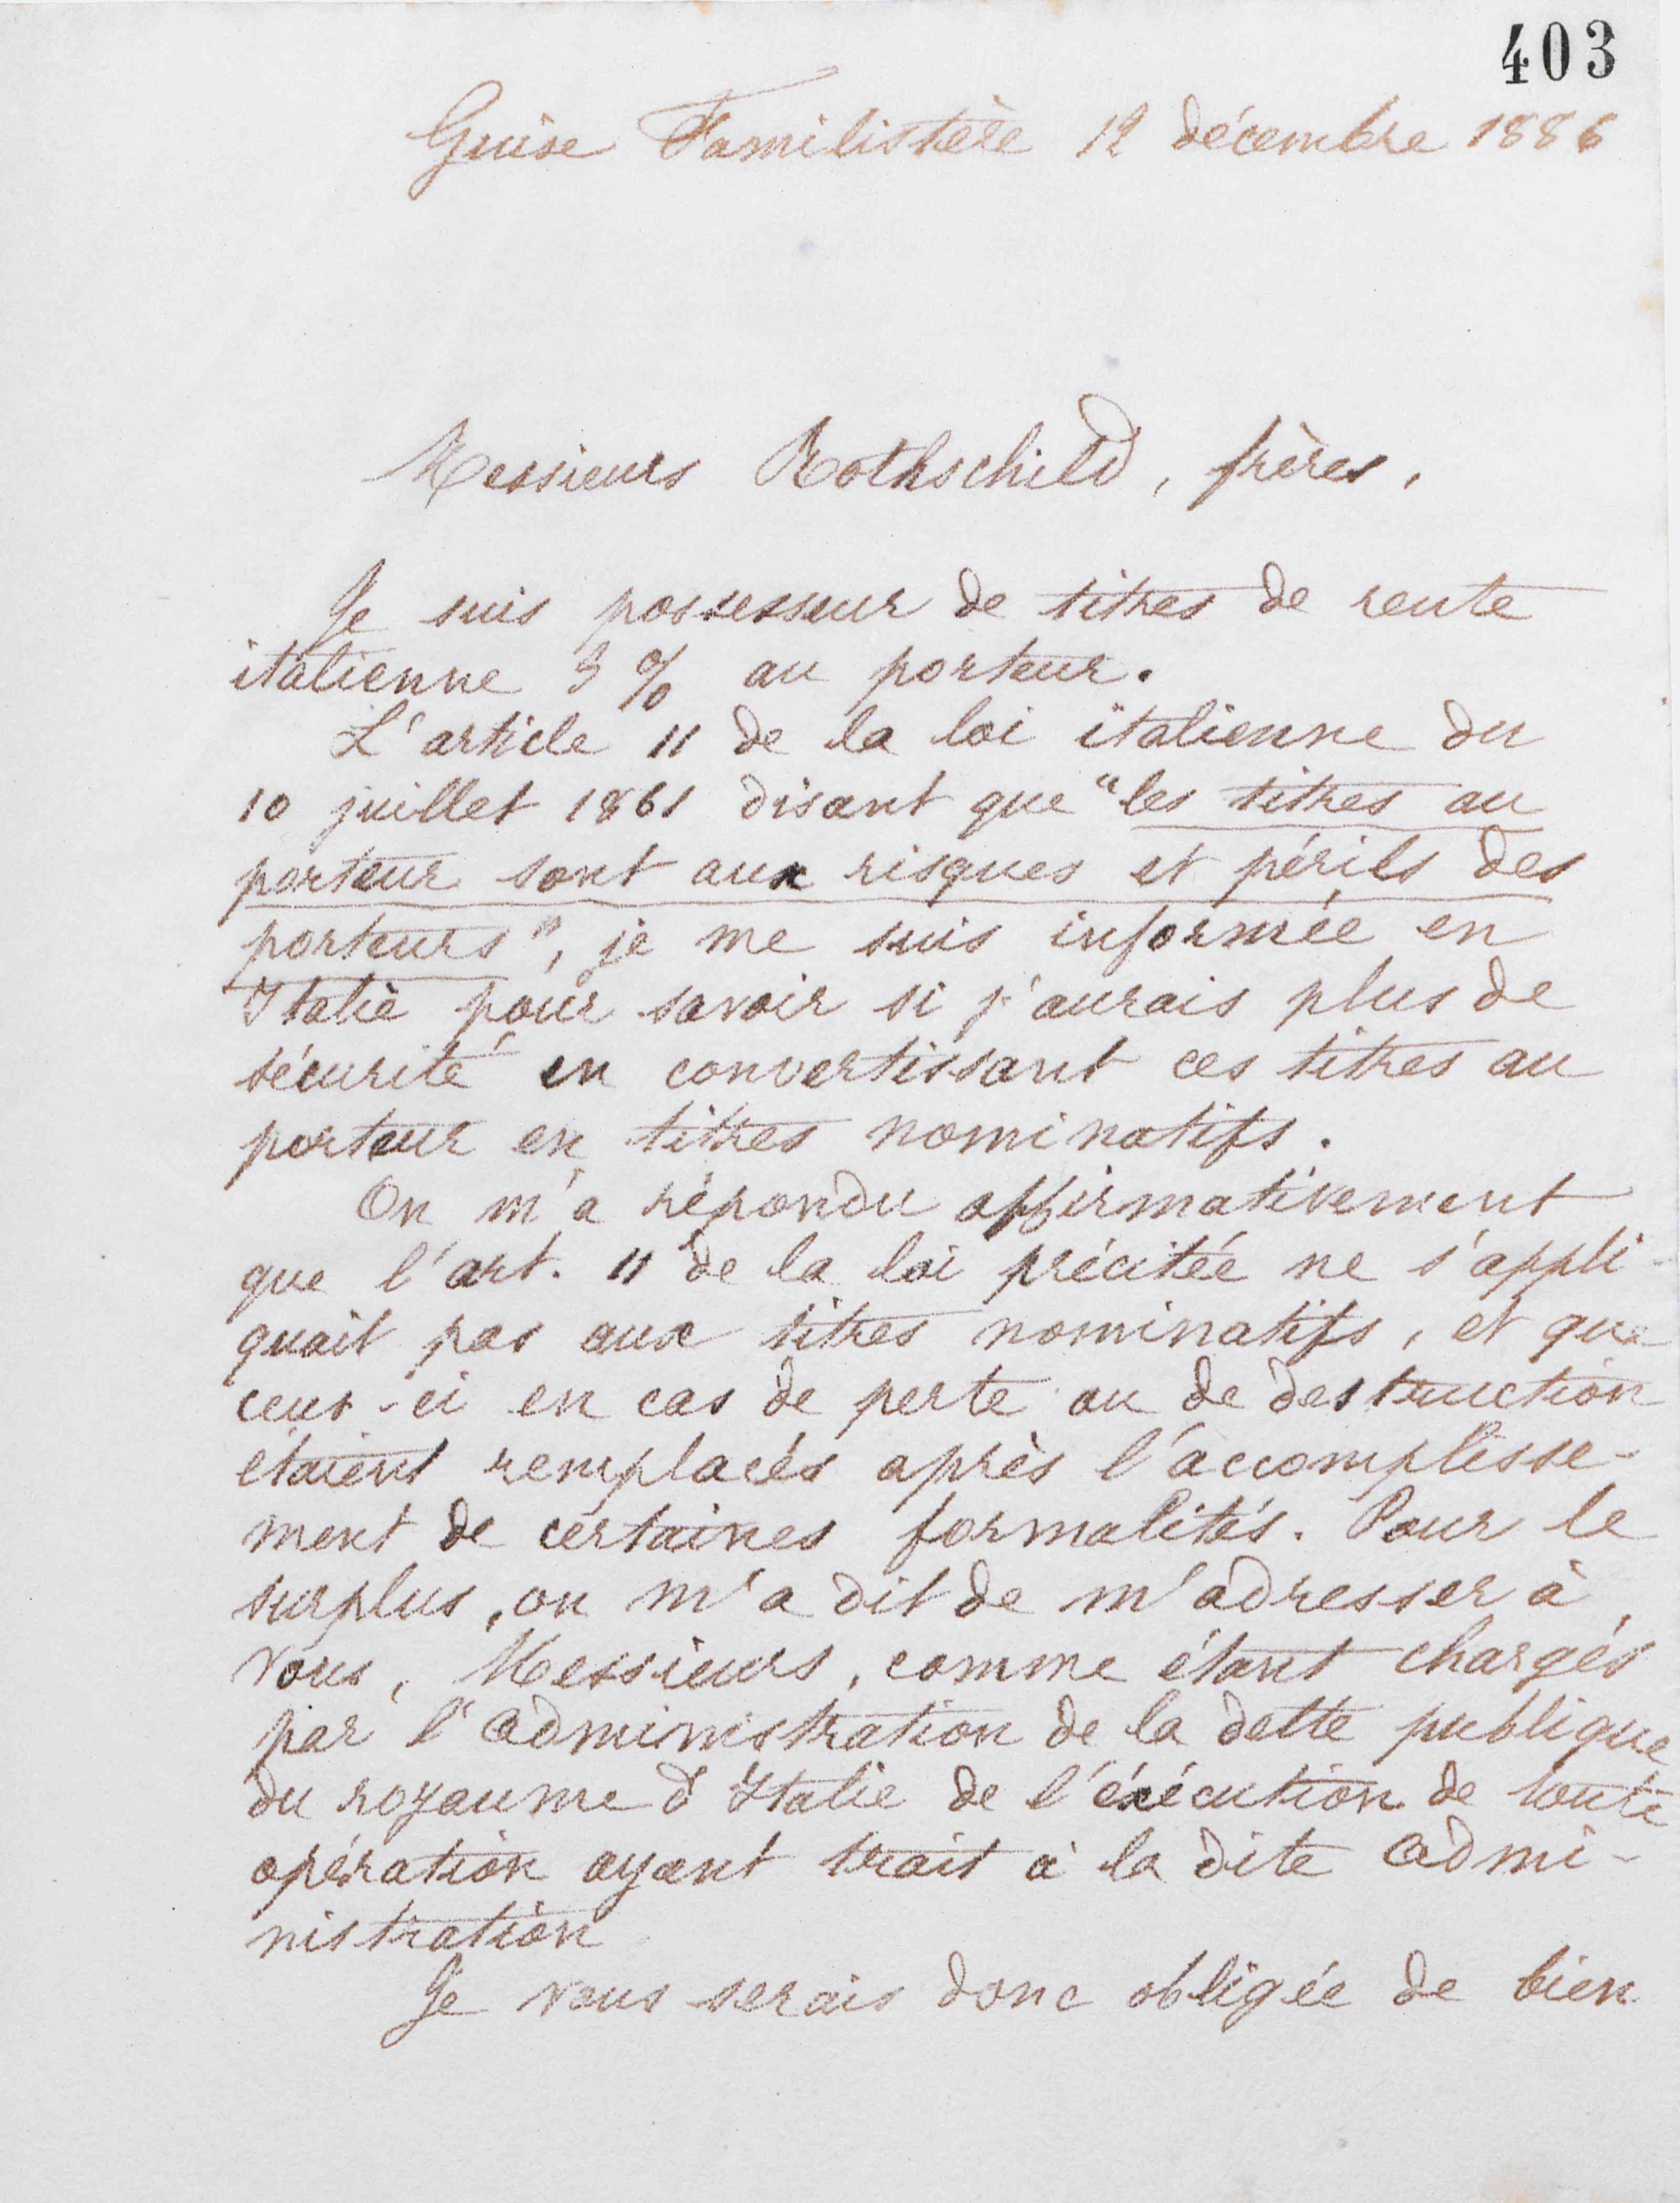 403
Guise Familistère 12 décembre 1886
Messieurs Rothschild, frères,
Je suis possesseur de titres de rente
italienne 5 % au porteur.
L'article 11 de la loi italienne du
10 juillet 1861 disant que "les titres au
porteur sont aux risques et périls des
porteurs", je me suis informée en
Italie pour savoir si j'aurais plus de
sécurité en convertissant ces titres au
porteur en titres nominatifs.
On m'a répondu affirmativement
que l'art. 11 de la loi précitée ne s'appli-
quait pas aux titres nominatifs, et que
ceux-ci en cas de perte ou de destruction
étaient remplacés après l'accomplisse-
ment de certaines formalités. Pour le
surplus, on m'a dit de m'adresser à
vous, Messieurs, comme étant chargés
par l'administration de la dette publique
du royaume d'Italie de l'éxécution de toute
opération ayant trait à la dite admi-
nistration
Je vous serais donc obligée de bien